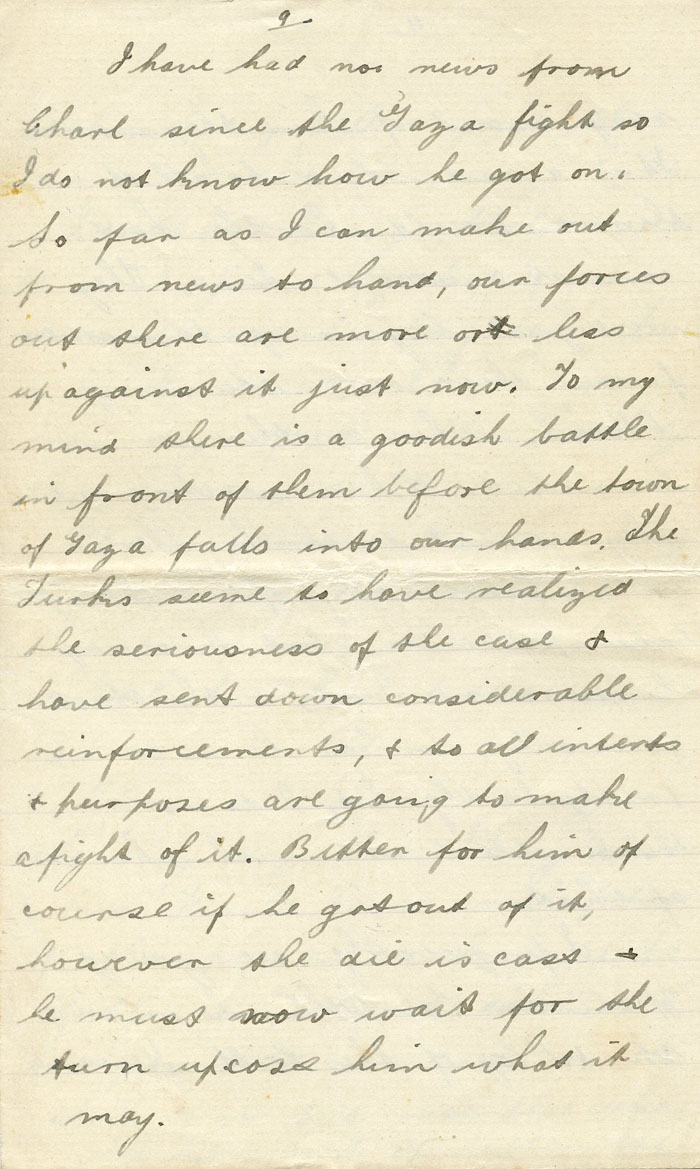 9.
I have had no news from
Charl since the Gaza fight so
I do not know how he got on.
So far as I can make out
from news to hand, our forces
out there are more or less
up against it just now. To my
mind there is a goodish battle
in front of them before the town
of Gaza falls into our hands. The
Turks seeme to have realized
the seriousness of the case &
have sent down considerable
reinforcements, & to all intents
& purposes are going to make
a fight of it. Bitter for him of
course if he got out of it,
however the die is cast &
he must now wait for the
turn up cost him what it
may.